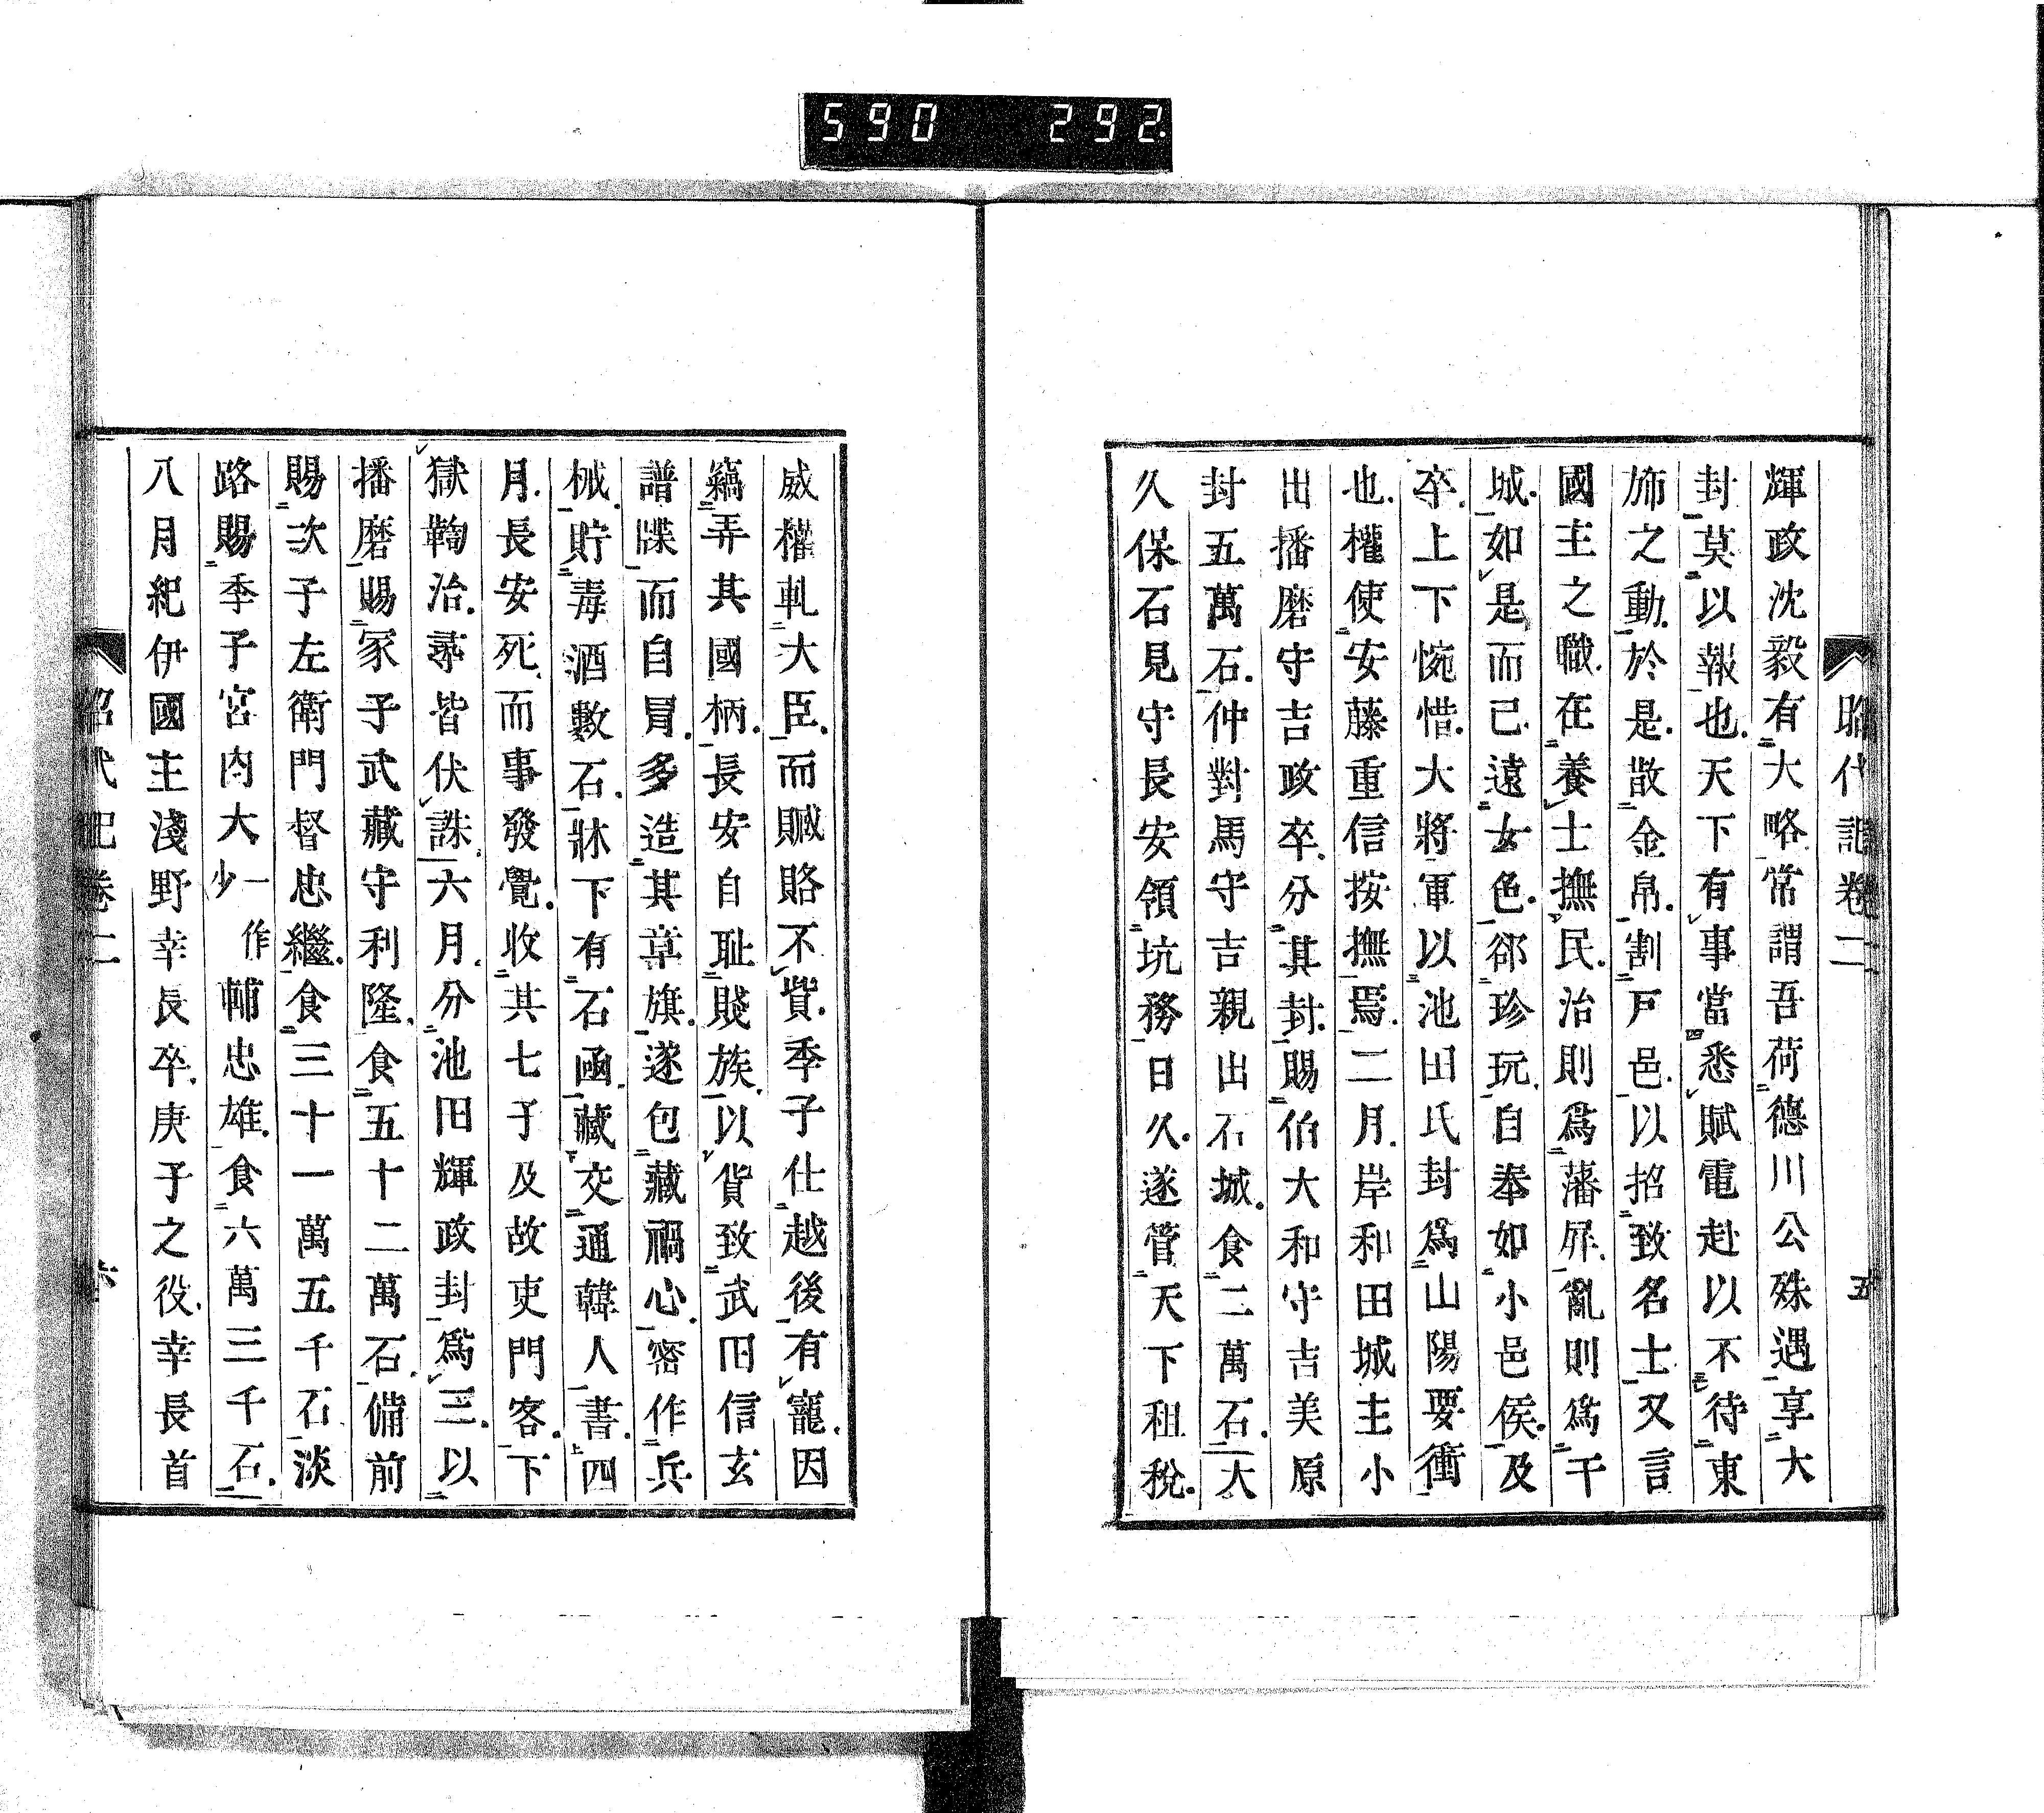 590 292
昭代記卷二 五
輝政沈毅有大略常謂吾荷德川公殊遇享大
封莫以報也天下有事當悉賦電赴以不待東
斾之動於是散金帛割戸邑以招致名士又言
國主之職在養士撫民治則爲藩屏亂則爲干
城如是而已遠女色郤珍玩自奉如小邑侯及
卒上下惋惜大將軍以池田氏封爲山陽要衝
也權使安藤重信按撫焉二月岸和田城主小
出播磨守吉政卒分其封賜伯大和守吉美原
封五萬石仲對馬守吉親出石城食二萬石大
久保石見守長安領坑務日久遂管天下租稅
威權軋大臣而贓賂不貲季子仕越後有寵因
竊弄其國柄長安自耻賤族以貨致武田信玄
譜牒而自冐多造其章旗遂包藏禍心密作兵
械貯毒酒數石牀下有石函藏交通韓人書四
月長安死而事發覺收其七子及故吏門客下
獄鞫治尋皆伏誅六月分池田輝政封爲三以
播磨賜冢子武藏守利隆食五十二萬石備前
賜次子左衛門督忠繼食三十一萬五千石淡
路賜季子宮内大一作少輔忠雄食六萬三千石
八月紀伊國主淺野幸長卒庚子之役幸長首
昭代記卷二 六